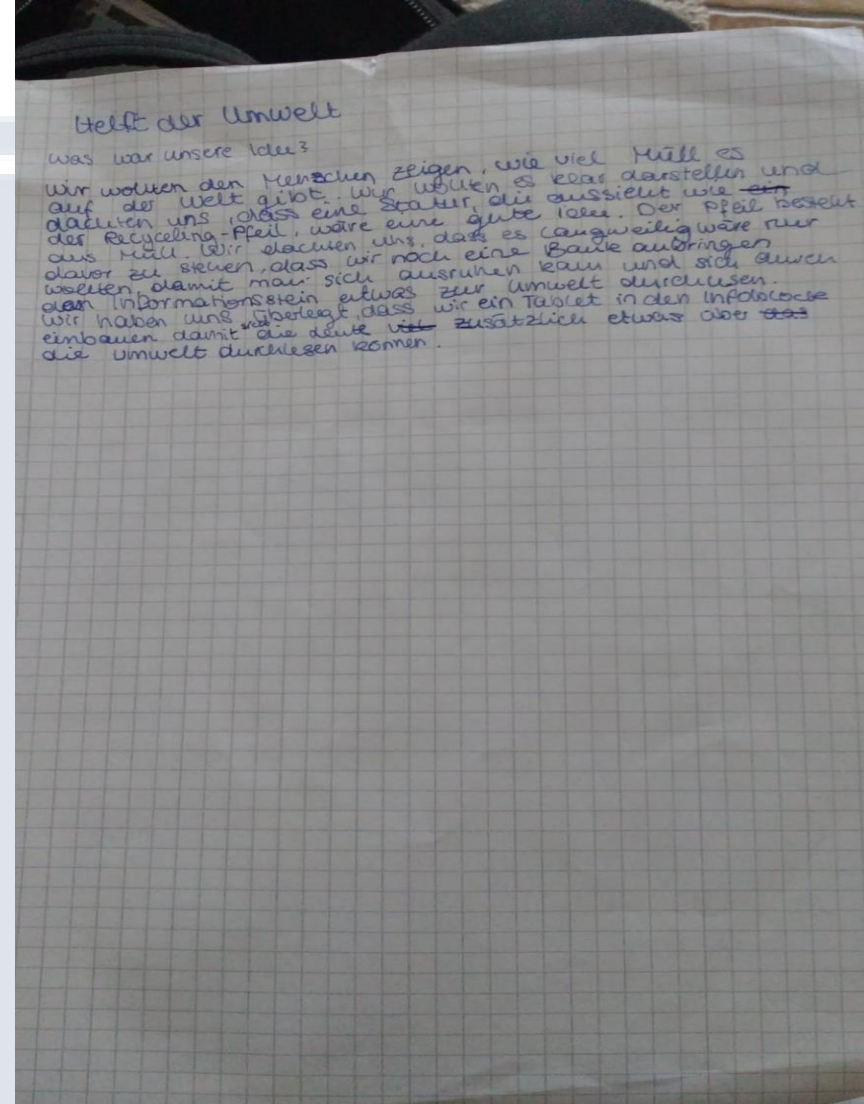 Helft der Umwelt
Was war unsere Idee?
Wir wollten den Menschen zeigen, wie viel Müll es
auf der Welt gibt. Wir wollten es klar darstellen und
dachten uns, dass eine Statur, die aussieht wie ein
der Recyceling-Pfeil, wäre eine gute Idee. Der Pfeil besteht
aus Müll. Wir dachten uns, dass es langweilig wäre nur
davor zu stehen, dass wir noch eine Bank anbringen
wollten, damit man sich ausruhen kann und sich durch
den Informationsstein etwas zur Umwelt durchlesen.
Wir haben uns überlegt, dass wir ein Tablet in den Infoblocke
einbauen damit sich die Leute viel zusätzlich etwas über
die Umwelt durchlesen können.